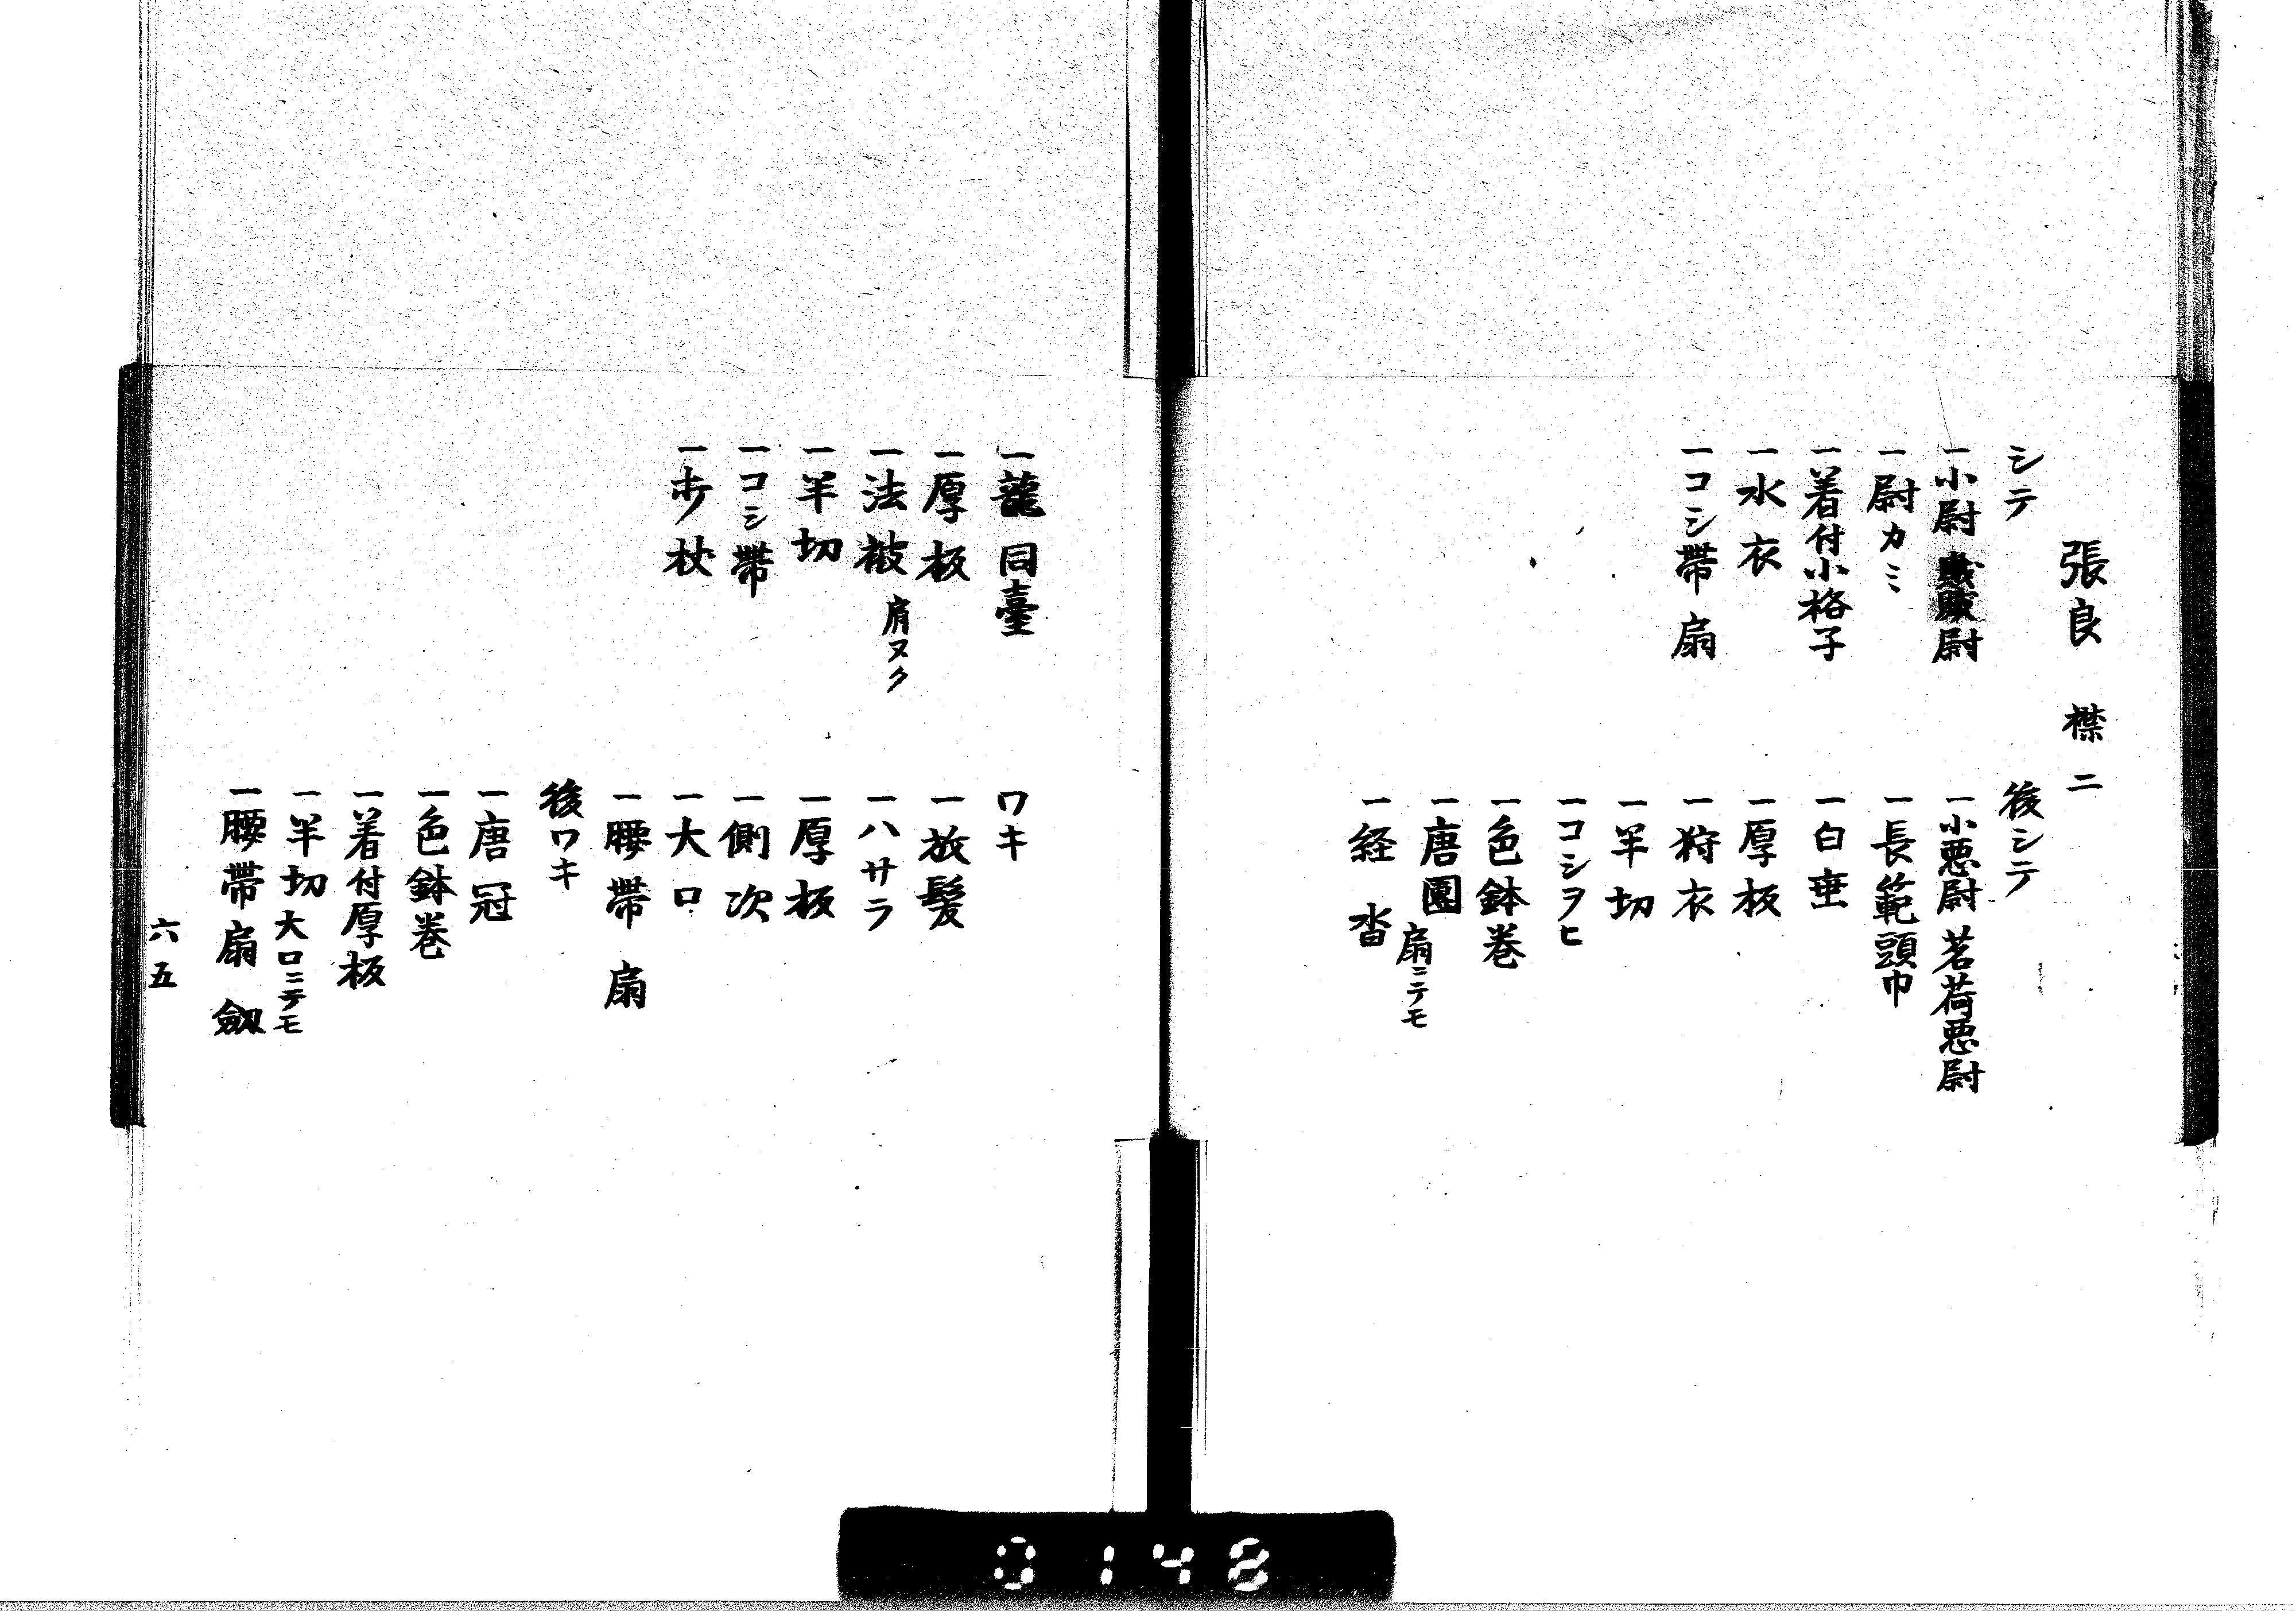 張良 襟二
シテ
一小尉 尉
一尉カミ
一着付小格子
一水衣
一コシ帯 扇
後シテ
一小悪尉 茗荷悪尉
一長範頭巾
一白垂
一厚板
一狩衣
一半切
一コシヲヒ
一色鉢巻
一唐團 扇ニテモ
一経沓
一龍同臺
一厚板
一法被 肩ヌク
一半切
一コシ帯
一歩杖
ワキ
一放髪
一ハサラ
一厚板
一側次
一大口
一腰帯 扇
後ワキ
一唐冠
一色鉢巻
一着付厚板
一半切 大口ニテモ
一腰帯 扇 劔
六五
0148